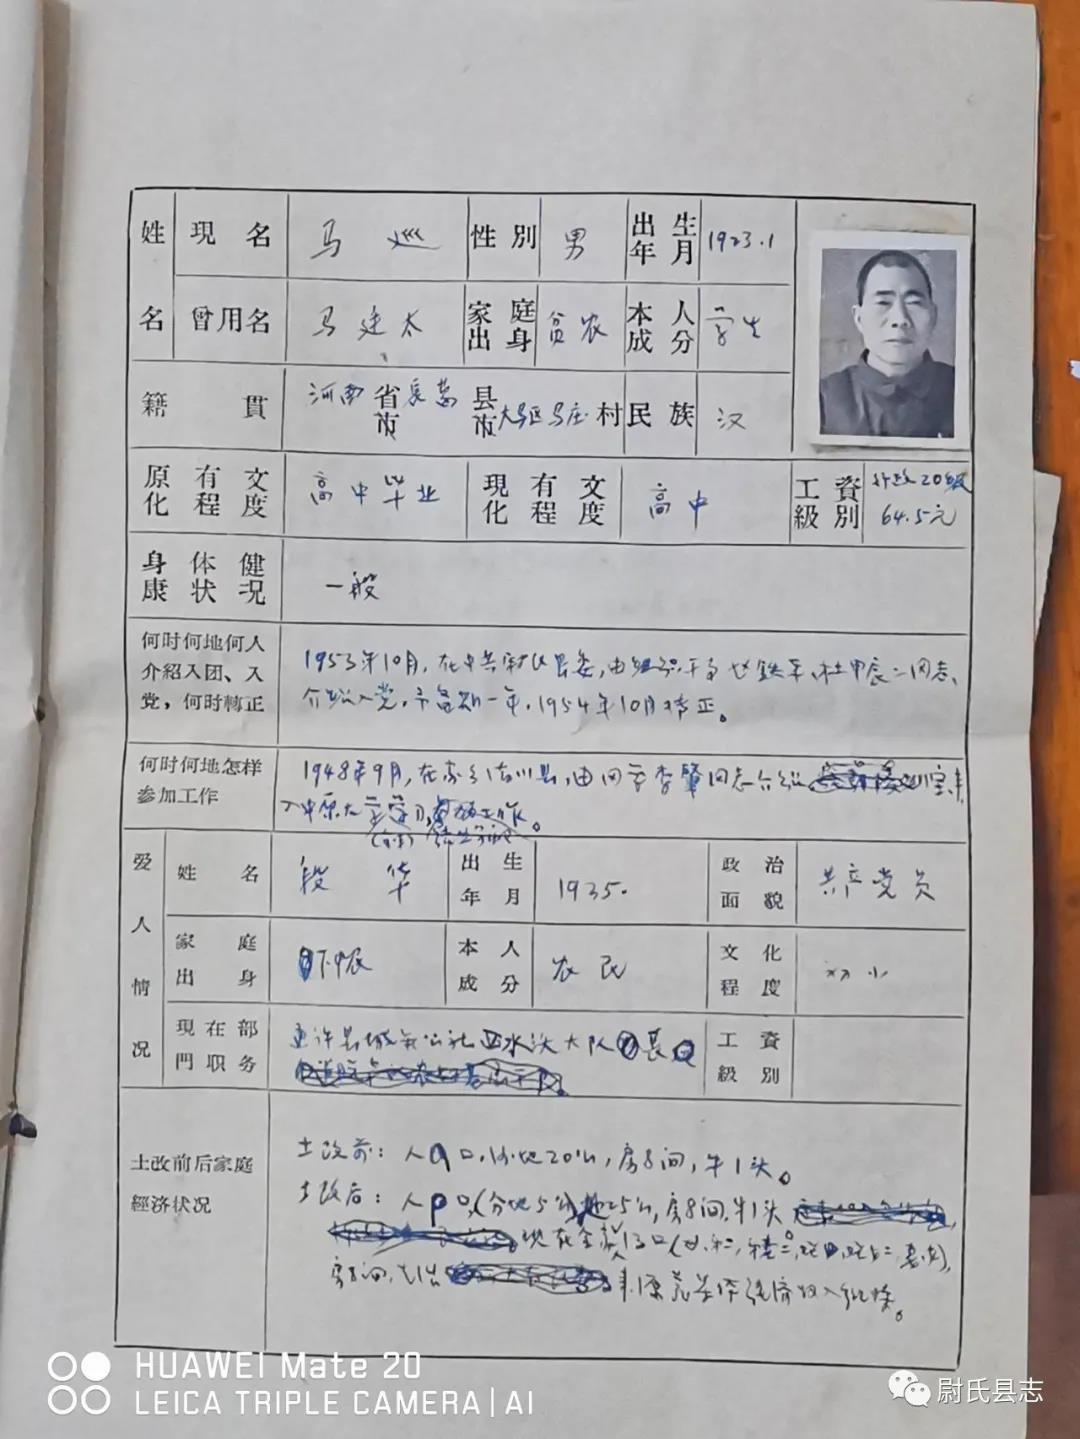 姓名 現名 马巡 性別 男 出生年月 1923.1
曾用名 马建太 家庭出身 贫农 本人成分 学生
籍貫 河南省市長葛县市大马区马庄村 民族 汉
原有文化程度 高中毕业 現有文化程度 高中 工資級別 行政20级 64.5元
身体健康状况 一般
何时何地何人介紹入团、入党，何时轉正
1953年10月，在中共 县委，由组织干事 铁 、杜甲辰二同志
介绍入党，予备期一年，1954年10月转正。
何时何地怎样参加工作
1948年9月，在 县，由同学李肇同志介绍
入中原大学学习 。
爱人情况 姓名 段华 出生年月 1935. 政治面貌 共产党员
家庭出身 下中农 本人成分 农民 文化程度 初小
現在部門职务 许昌县城关公社 水 大队 工資級別
土改前后家庭經济状况
土改前：人9口， 地20亩，房8间，牛1头。
土改后：人 口，（分地5亩）地25亩，房8间，牛1头
现在全家13口
房8间， 经济收入
HUAWEI Mate 20
LEICA TRIPLE CAMERA | AI
尉氏县志